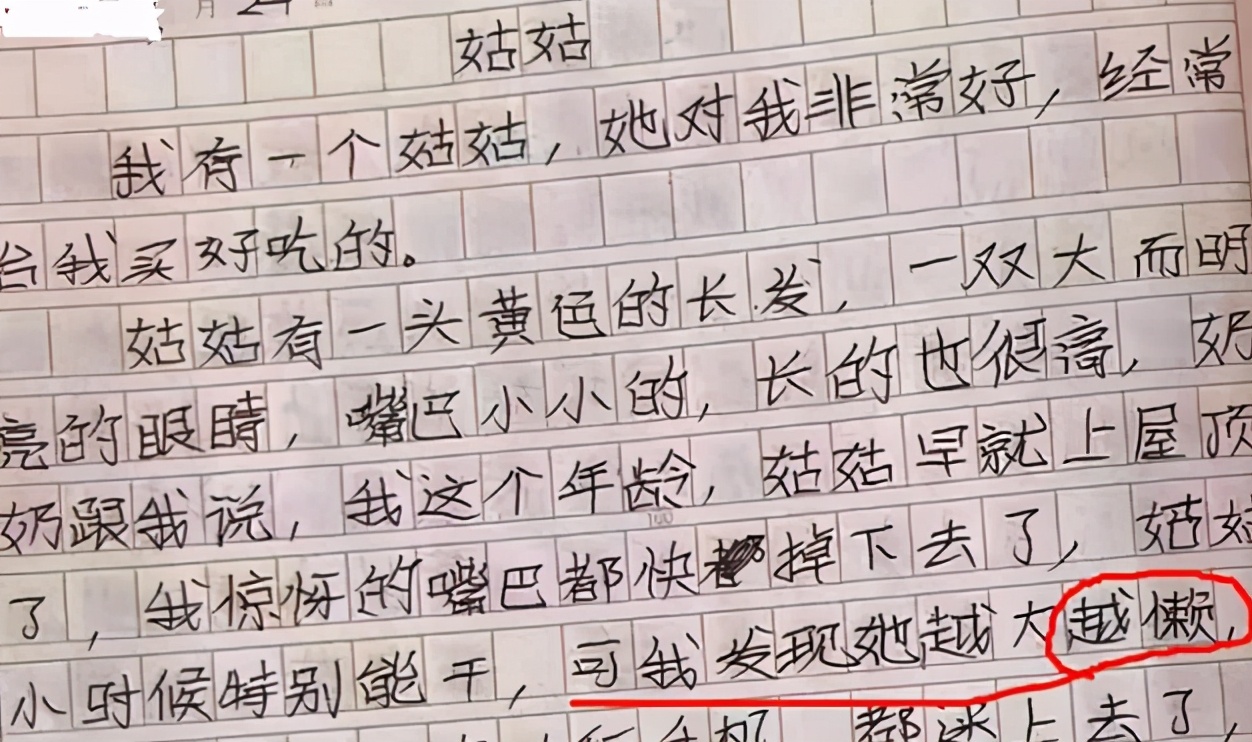 月24
姑姑
我有一个姑姑，她对我非常好，经常
给我买好吃的。
姑姑有一头黄色的长发，一双大而明
亮的眼睛，嘴巴小小的，长的也很高，奶
奶跟我说，我这个年龄，姑姑早就上屋顶
了，我惊讶的嘴巴都快掉下去了，姑姑
小时候特别能干，可我发现她越大越懒，
都送上去了，